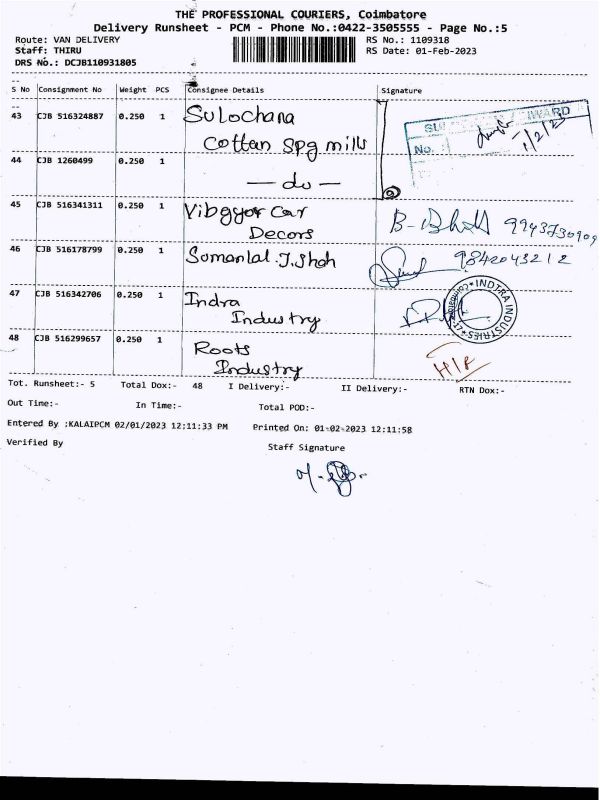 THE PROFESSIONAL COURIERS, Coimbatore
Delivery Runsheet - PCM - Phone No.:0422-3505555 - Page No.:5
Route: VAN DELIVERY RS No.: 1109318
Staff: THIRU RS Date: 01-Feb-2023
DRS No.: DCJB110931805
S No Consignment No Weight PCS Consignee Details Signature
43 CJB 516324887 0.250 1 Sulochana
Cottan Spg mills
INWARD
No.
1/2/23
44 CJB 1260499 0.250 1
— do —
45 CJB 516341311 0.250 1 Vibgyor Car
Decors
9943730909
46 CJB 516178799 0.250 1 Sumanlal.J.Shah
9842043212
47 CJB 516342706 0.250 1 Indra
Industry
INDTRA INDUSTRIES
48 CJB 516299657 0.250 1 Roots
Industry
Tot. Runsheet:- 5 Total Dox:- 48 I Delivery:- II Delivery:- RTN Dox:-
Out Time:- In Time:- Total POD:-
Entered By :KALAIPCM 02/01/2023 12:11:33 PM Printed On: 01-02-2023 12:11:58
Verified By Staff Signature